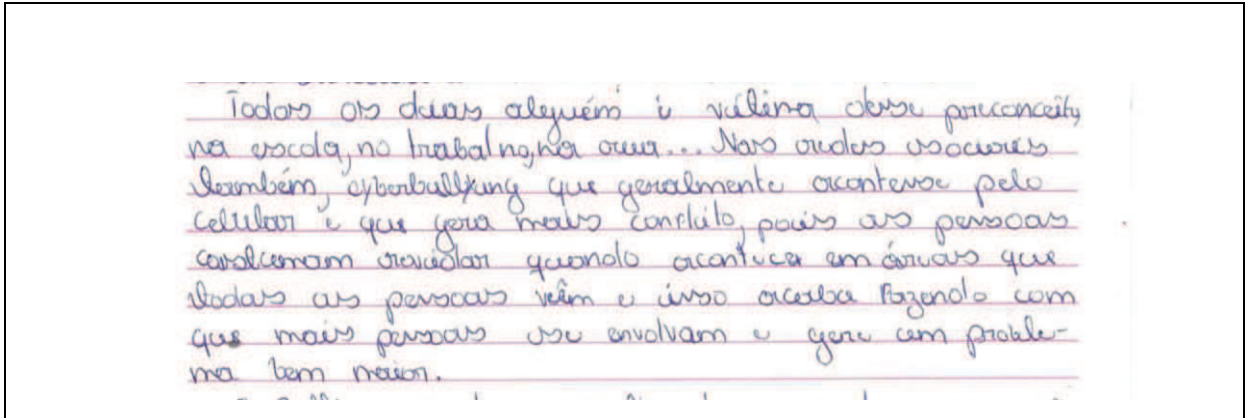 Todos os duas alguém é vítima desse preconceito,
na escola, no trabalho, na rua... Nas redes sociais
também, cyberbullyung que geralmente acontesse pelo
celular é que gera mais conflito, pois as pessoas
revidar quando acontece em áreas que
todas as pessoas vêm e isso acaba fazendo com
que mais pessoas se envolvam e gere um proble-
ma bem maior.